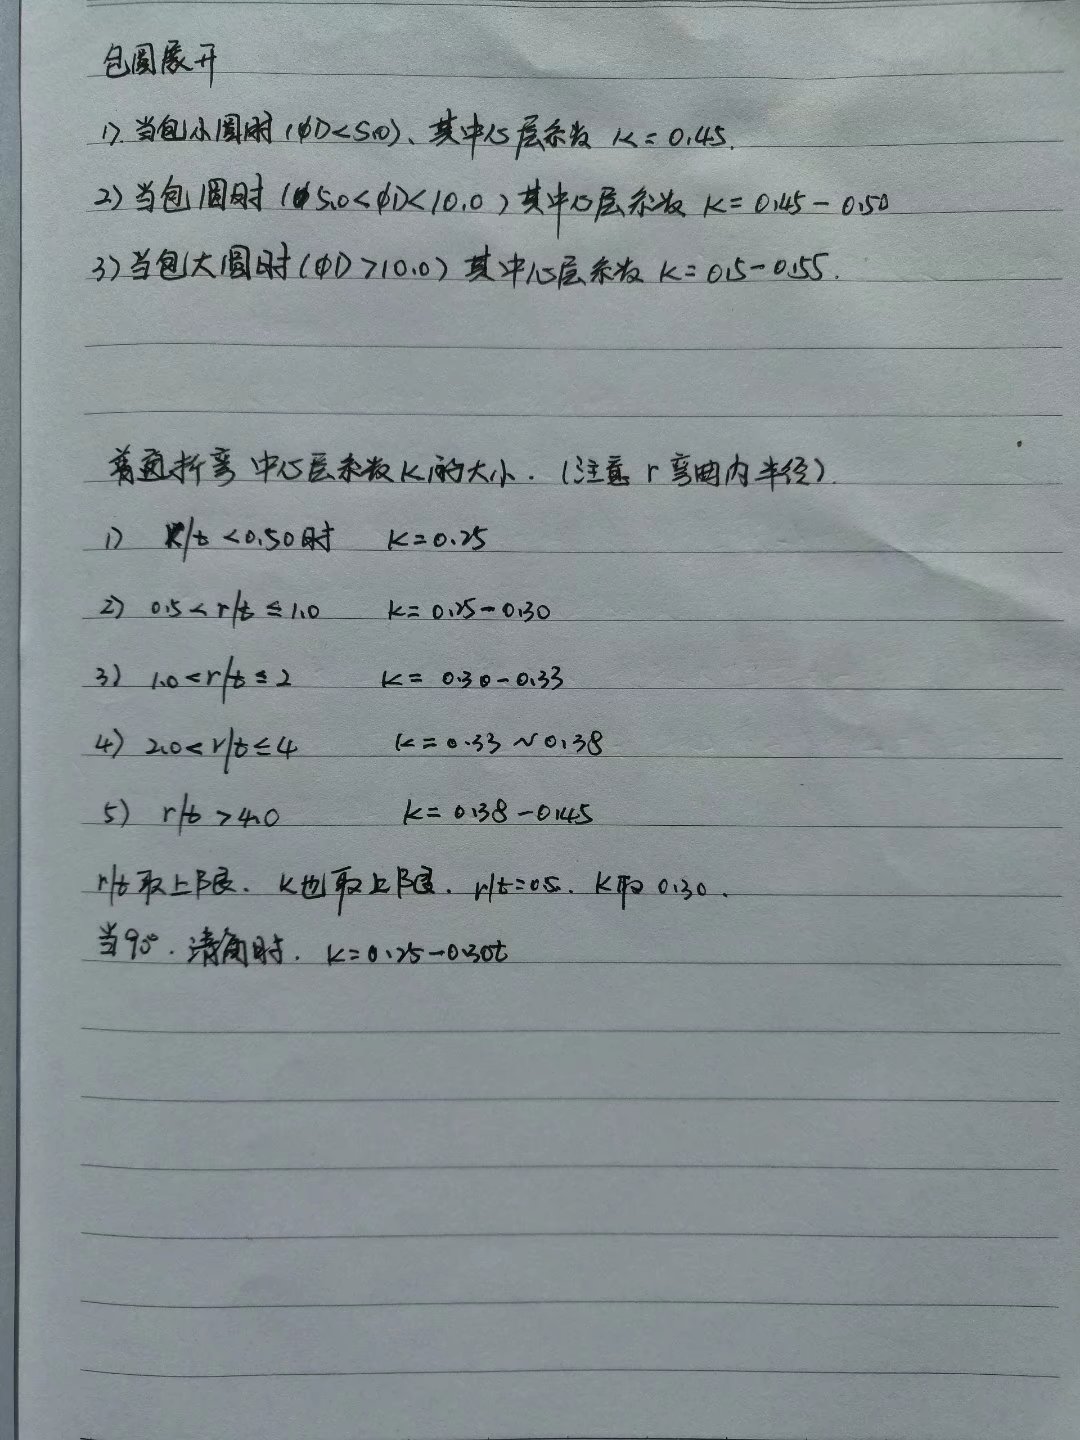 包圆展开
1). 当包小圆时 (φD<5.0)、其中心层系数 K=0.45.
2) 当包圆时 (φ5.0<φD<10.0) 其中心层系数 K=0.45-0.50
3) 当包大圆时 (φD>10.0) 其中心层系数 K=0.5-0.55.
普通折弯 中心层系数K的大小. (注意 r 弯曲内半径).
1) r/t <0.50时 K=0.25
2) 0.5<r/t≤1.0 K=0.25-0.30
3) 1.0<r/t≤2 K= 0.30-0.33
4) 2.0<r/t≤4 K=0.33~0.38
5) r/t >4.0 K= 0.38-0.45
r/t取上限. K也取上限. r/t=0.5. K取 0.30.
当90°. 清角时. K=0.25-0.30t